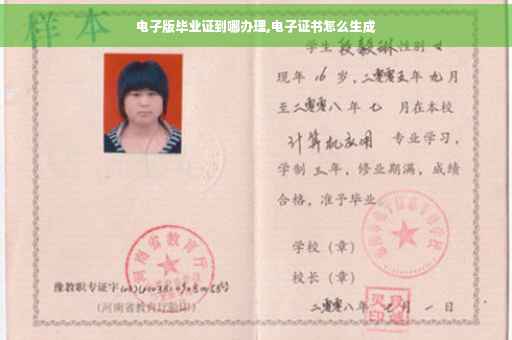 电子版毕业证到哪办理,电子证书怎么生成
样本
学生 段毅琳 性别 女
现年 16 岁,二零零五年 九 月
至二零零八 年 七 月在本校
计算机应用 专业学习,
学制 三 年,修业期满,成绩
合格,准予毕业
学校(章)
校长(章)
二零零八年 月 一 日
河南省教育厅
豫教职专证字
(河南省教育厅验印)